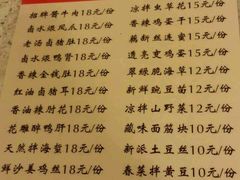 招牌酱牛肉18元/份
卤水煨凤瓜18元/份
老汤卤猪肚18元/份
卤水煨鸭胃18元/份
香辣金钱肚18元/份
红油卤猪耳18元/份
香油辣肘花18元/份
花雕醉鸭肝18元/份
天然拌海蜇18元/份
鲜沙姜鸡丝18元/份
凉拌虫草花15元/份
香辣鸡蛋干15元/份
藕断丝连15元/份
透亮变鸡蛋15元/份
翠绿脱海草12元/份
新鲜豌豆苗12元/份
凉拌山野菜12元/份
藏味面筋块10元/份
新派土豆丝10元/份
春菜拌黄豆10元/份